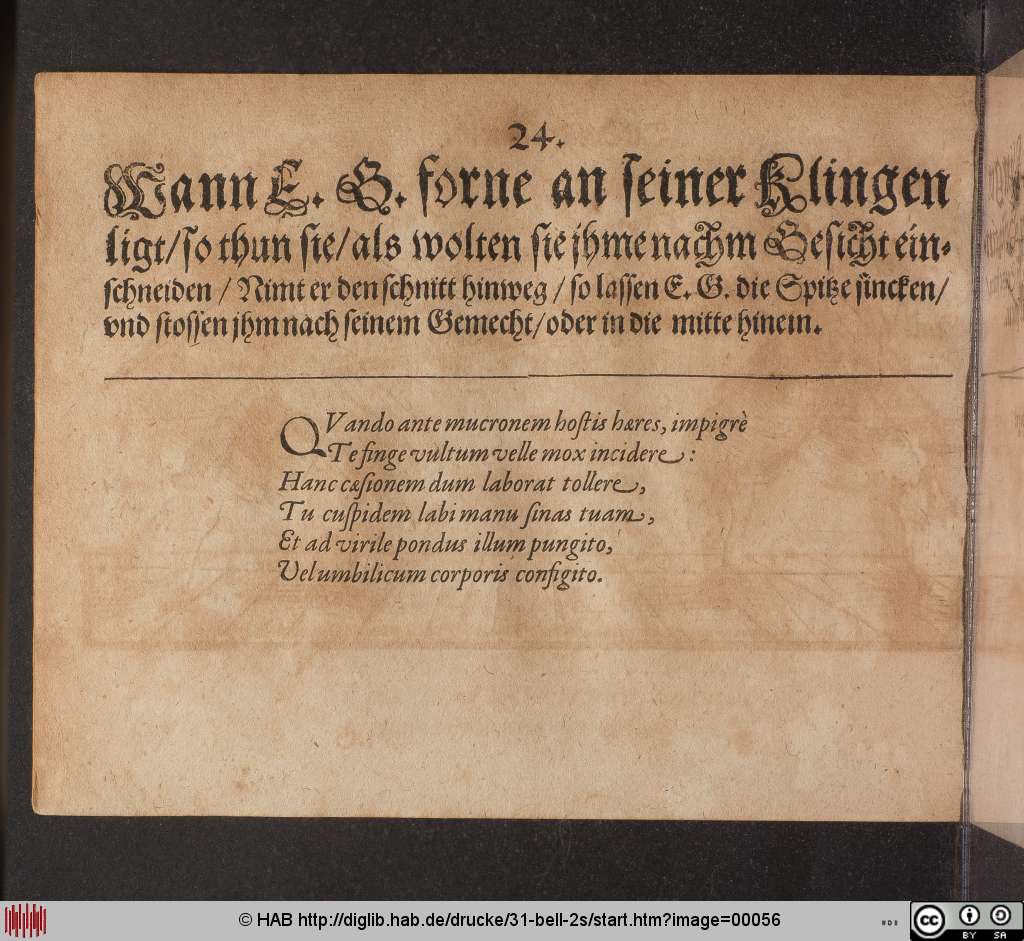 24.
Wann E. G. forne an seiner Klingen
ligt/so thun sie/als wolten sie jhme nachm Gesicht ein-
schneiden / Nimt er den schnitt hinweg / so lassen E. G. die Spitze sincken/
vnd stossen jhm nach seinem Gemecht/oder in die mitte hinein.
QVando ante mucronem hostis hæres, impigrè
Te finge vultum velle mox incidere :
Hanc cæsionem dum laborat tollere,
Tu cuspidem labi manu sinas tuam,
Et ad virile pondus illum pungito,
Vel umbilicum corporis configito.
© HAB http://diglib.hab.de/drucke/31-bell-2s/start.htm?image=00056
cc BY SA